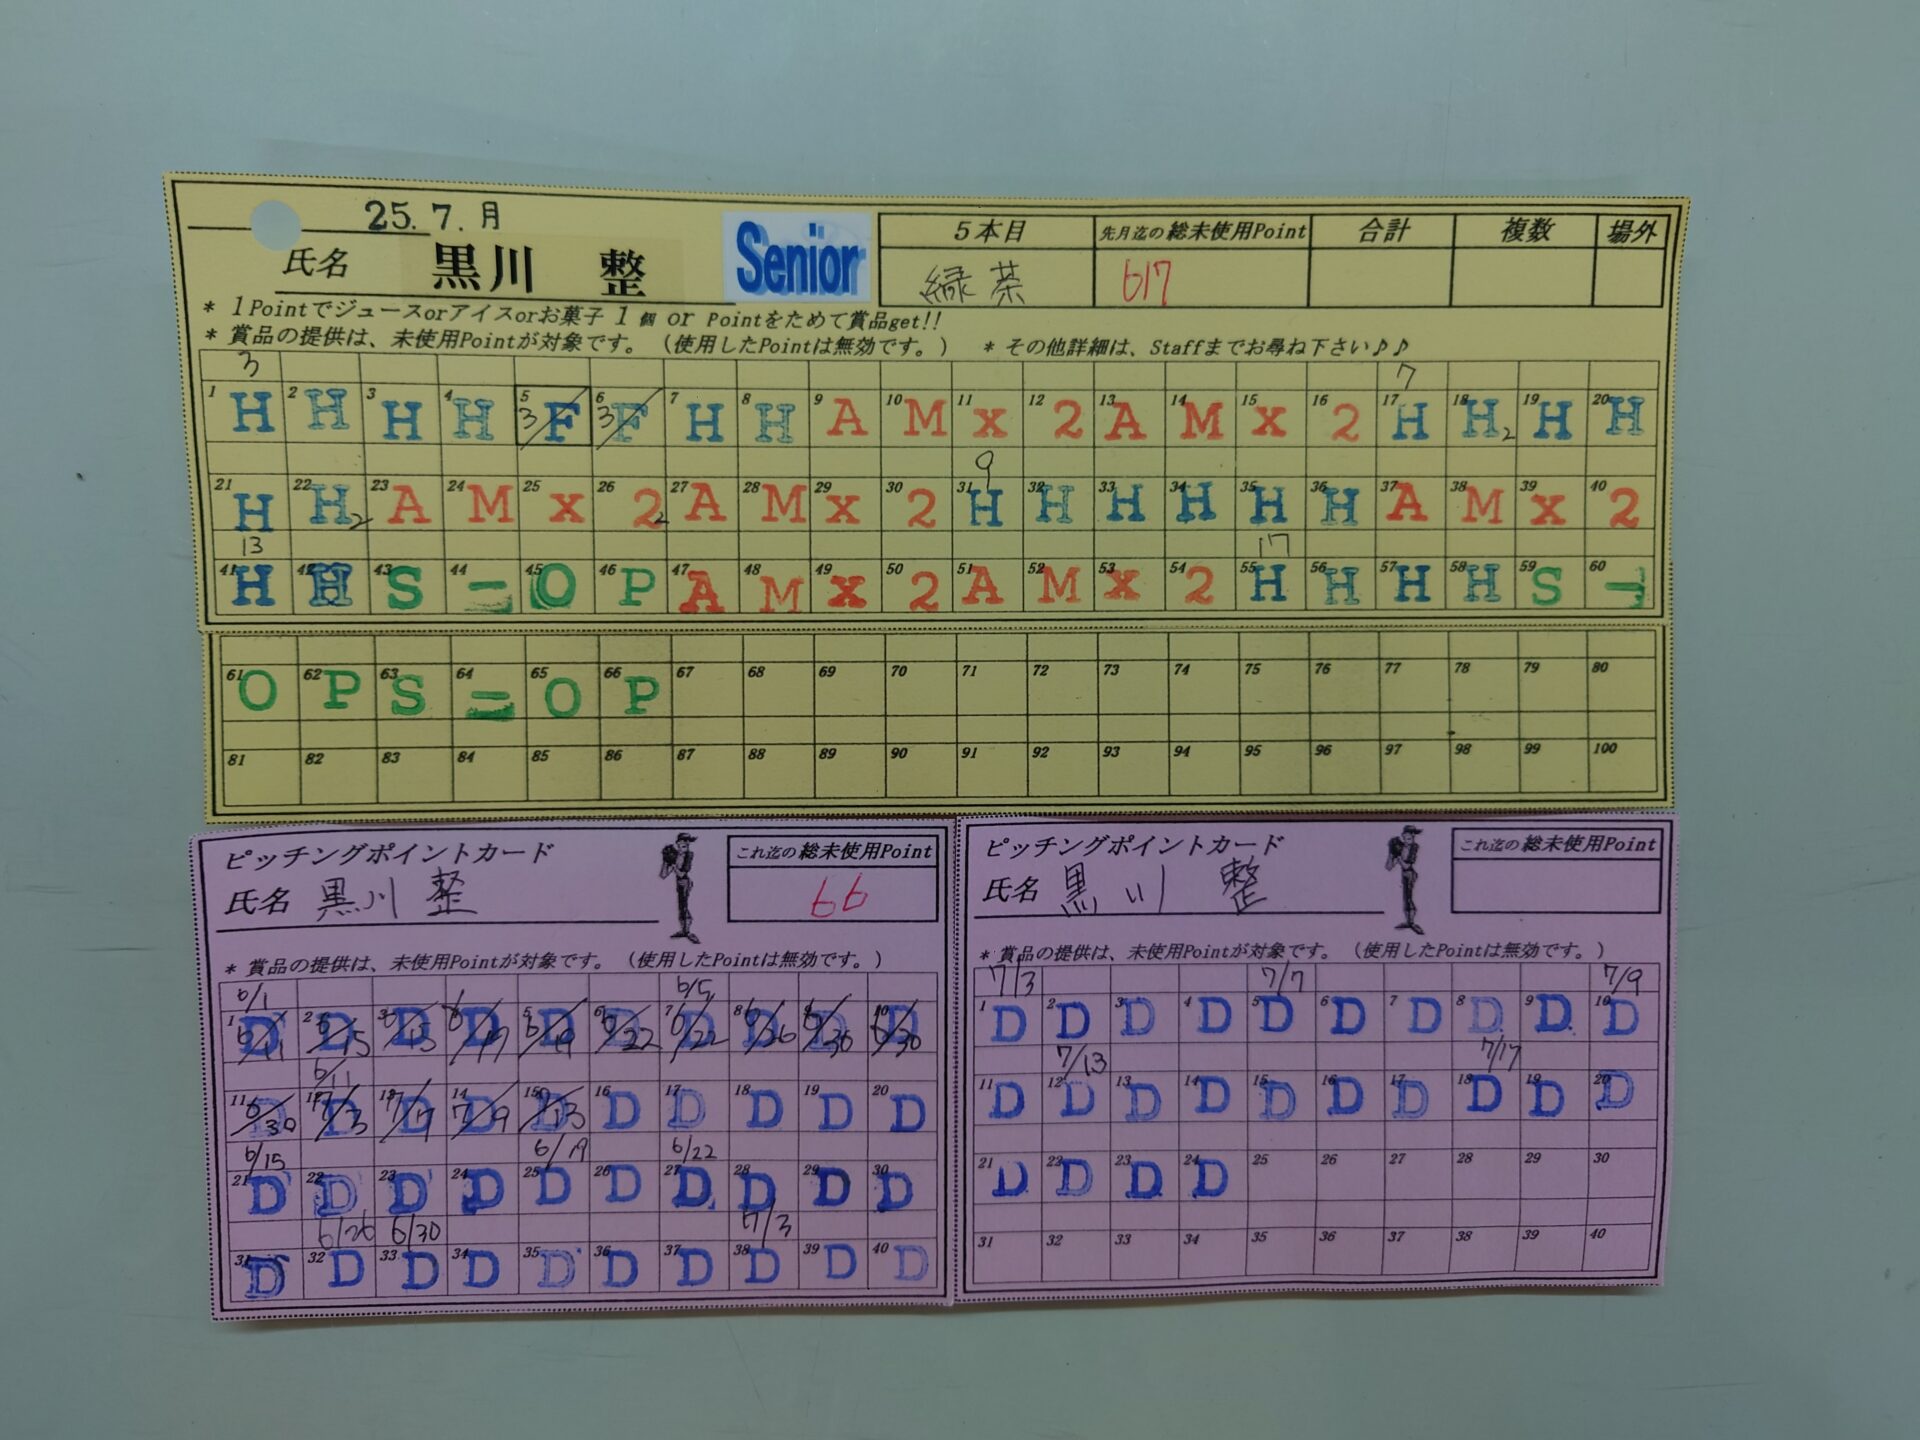 25. 7. 月
氏名 黒川 整
Senior
5本目 先月迄の総未使用Point 合計 複数 場外
緑茶 617
* 1Pointでジュースorアイスorお菓子 1 個 or Pointをためて賞品get!!
* 賞品の提供は、未使用Pointが対象です。(使用したPointは無効です。) * その他詳細は、Staffまでお尋ね下さい♪♪
3 7
1 2 3 4 5 6 7 8 9 10 11 12 13 14 15 16 17 18 19 20
H H H H 3 F 3 F H H A M x 2 A M x 2 H H 2 H H
9
21 22 23 24 25 26 27 28 29 30 31 32 33 34 35 36 37 38 39 40
H H 2 A M x 2 2 A M x 2 H H H H H H A M x 2
13 17
41 42 43 44 45 46 47 48 49 50 51 52 53 54 55 56 57 58 59 60
H H S - O P A M x 2 A M x 2 H H H H S -
61 62 63 64 65 66 67 68 69 70 71 72 73 74 75 76 77 78 79 80
O P S - O P
81 82 83 84 85 86 87 88 89 90 91 92 93 94 95 96 97 98 99 100
ピッチングポイントカード これ迄の総未使用Point
氏名 黒川 整 66
* 賞品の提供は、未使用Pointが対象です。(使用したPointは無効です。)
6/1 6/5
1 2 3 4 5 6 7 8 9 10
D D D D D D D D D D
6/11 6/15 6/15 6/19 6/22 6/22 6/26 6/30 6/30
6/11
11 12 13 14 15 16 17 18 19 20
D D D D D D D D D D
6/30 7/3 7/7 7/9 7/13
6/15 6/19 6/22
21 22 23 24 25 26 27 28 29 30
D D D D D D D D D D
6/26 6/30 7/3
31 32 33 34 35 36 37 38 39 40
D D D D D D D D D D
ピッチングポイントカード これ迄の総未使用Point
氏名 黒川 整
* 賞品の提供は、未使用Pointが対象です。(使用したPointは無効です。)
7/3 7/7 7/9
1 2 3 4 5 6 7 8 9 10
D D D D D D D D D D
7/13 7/17
11 12 13 14 15 16 17 18 19 20
D D D D D D D D D D
21 22 23 24 25 26 27 28 29 30
D D D D
31 32 33 34 35 36 37 38 39 40